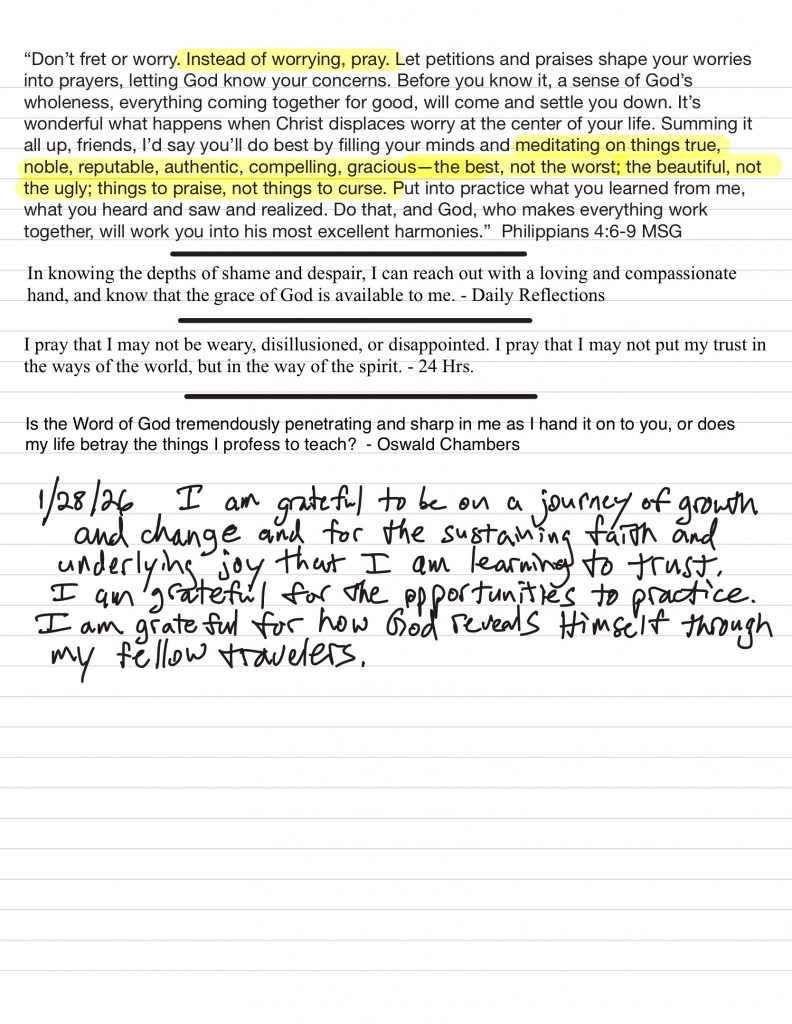 “Don’t fret or worry. Instead of worrying, pray. Let petitions and praises shape your worries
into prayers, letting God know your concerns. Before you know it, a sense of God’s
wholeness, everything coming together for good, will come and settle you down. It’s
wonderful what happens when Christ displaces worry at the center of your life. Summing it
all up, friends, I’d say you’ll do best by filling your minds and meditating on things true,
noble, reputable, authentic, compelling, gracious—the best, not the worst; the beautiful, not
the ugly; things to praise, not things to curse. Put into practice what you learned from me,
what you heard and saw and realized. Do that, and God, who makes everything work
together, will work you into his most excellent harmonies.”  Philippians 4:6-9 MSG
In knowing the depths of shame and despair, I can reach out with a loving and compassionate
hand, and know that the grace of God is available to me. - Daily Reflections
I pray that I may not be weary, disillusioned, or disappointed. I pray that I may not put my trust in
the ways of the world, but in the way of the spirit. - 24 Hrs.
Is the Word of God tremendously penetrating and sharp in me as I hand it on to you, or does
my life betray the things I profess to teach?  - Oswald Chambers
1/28/26 I am grateful to be on a journey of growth
and change and for the sustaining faith and
underlying joy that I am learning to trust.
I am grateful for the opportunities to practice.
I am grateful for how God reveals Himself through
my fellow travelers.